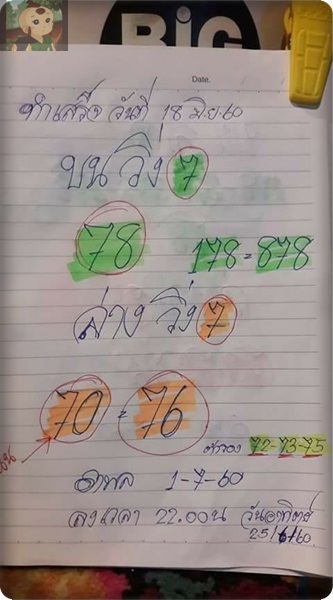 BiG
Date.
ทำเสร็จ วันที่ 18 มิย.60
บน วิ่ง 7
78 178 = 878
ล่าง วิ่ง 7
70 = 76
ตัวลอง 72-73-75
1-7-60
ลงเวลา 22.00น วันอาทิตย์
25/6/60